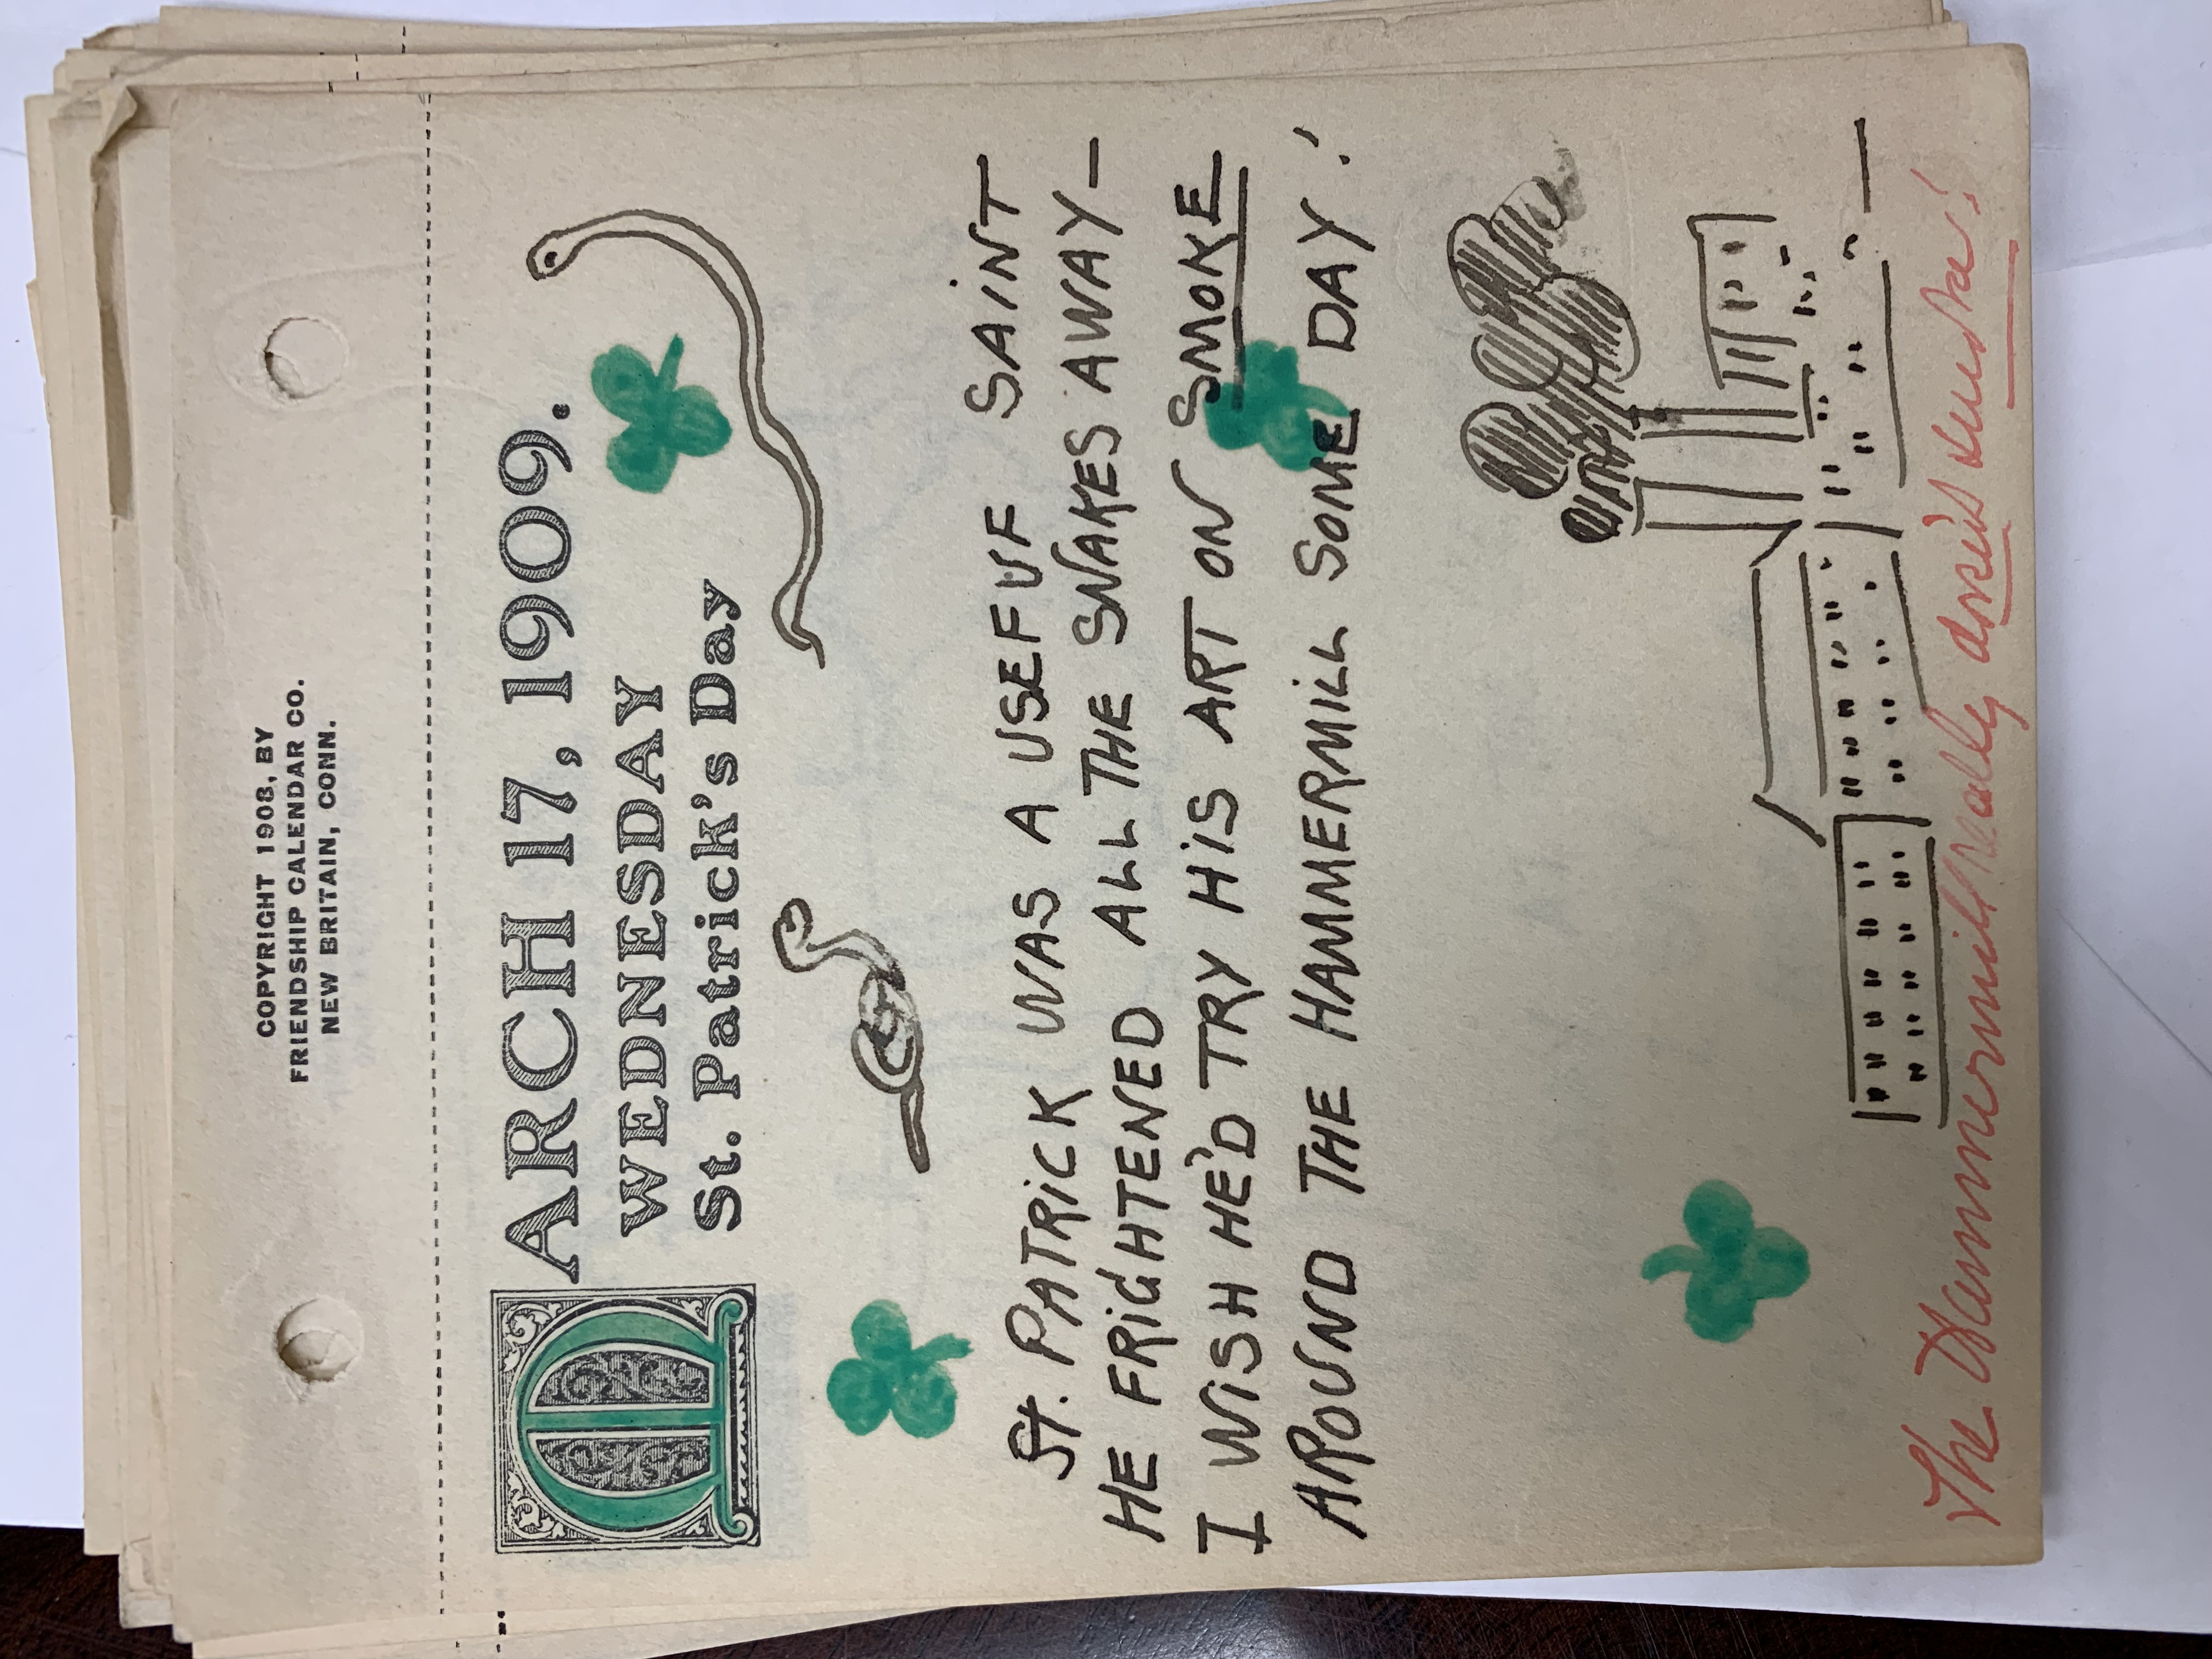 COPYRIGHT 1908, BY
FRIENDSHIP CALENDAR CO.
NEW BRITAIN, CONN.
MARCH 17, 1909.
WEDNESDAY
St. Patrick's Day
St. PATRiCK WAS A USEFUF SAiNT
HE FRiGHTENED ALL THE SNAKES AWAY—
I WiSH HE'D TRY HiS ART ON SMOKE
AROUND THE HAMMERMiLL SOME DAY!
The Hammermill really doesn't smoke!